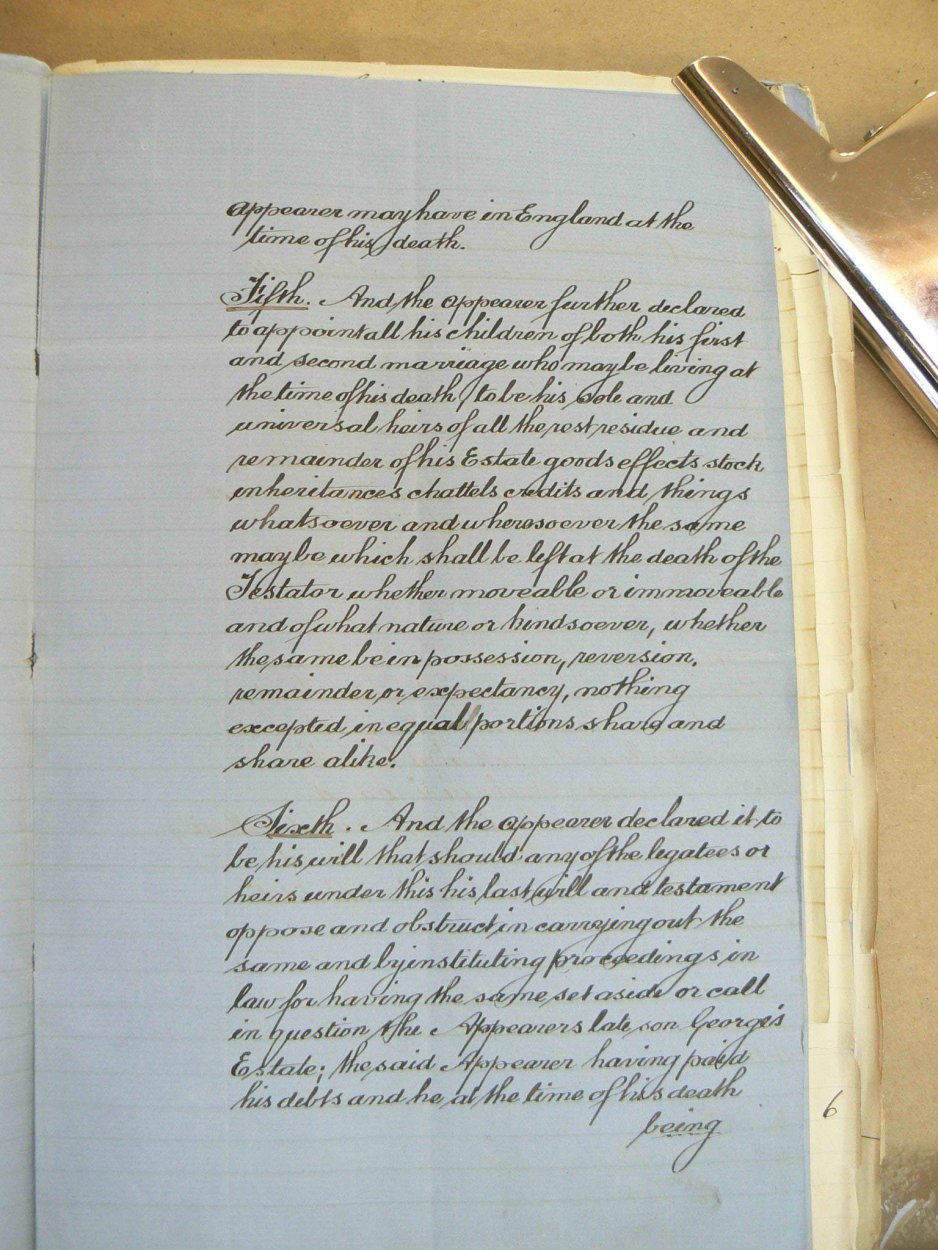 appearer may have in England at the
time of his death.
Fifth. And the appearer further declared
to appoint all his children of both his first
and second marriage who may be living at
the time of his death, to be his sole and
universal heirs of all the rest residue and
remainder of his Estate goods effects stock
inheritances chattels credits and things
whatsoever and wheresoever the same
may be which shall be left at the death of the
Testator whether moveable or immoveable
and of what nature or kind soever, whether
the same be in possession, reversion,
remainder, or expectancy, nothing
excepted, in equal portions share and
share alike.
Sixth. And the appearer declared it to
be his will that should any of the legatees or
heirs under this his last will and testament
oppose and obstruct in carrying out the
same and by instituting proceedings in
law for having the same set aside or call
in question the Appearers late son George's
Estate; the said Appearer having paid
his debts and he at the time of his death
being
6